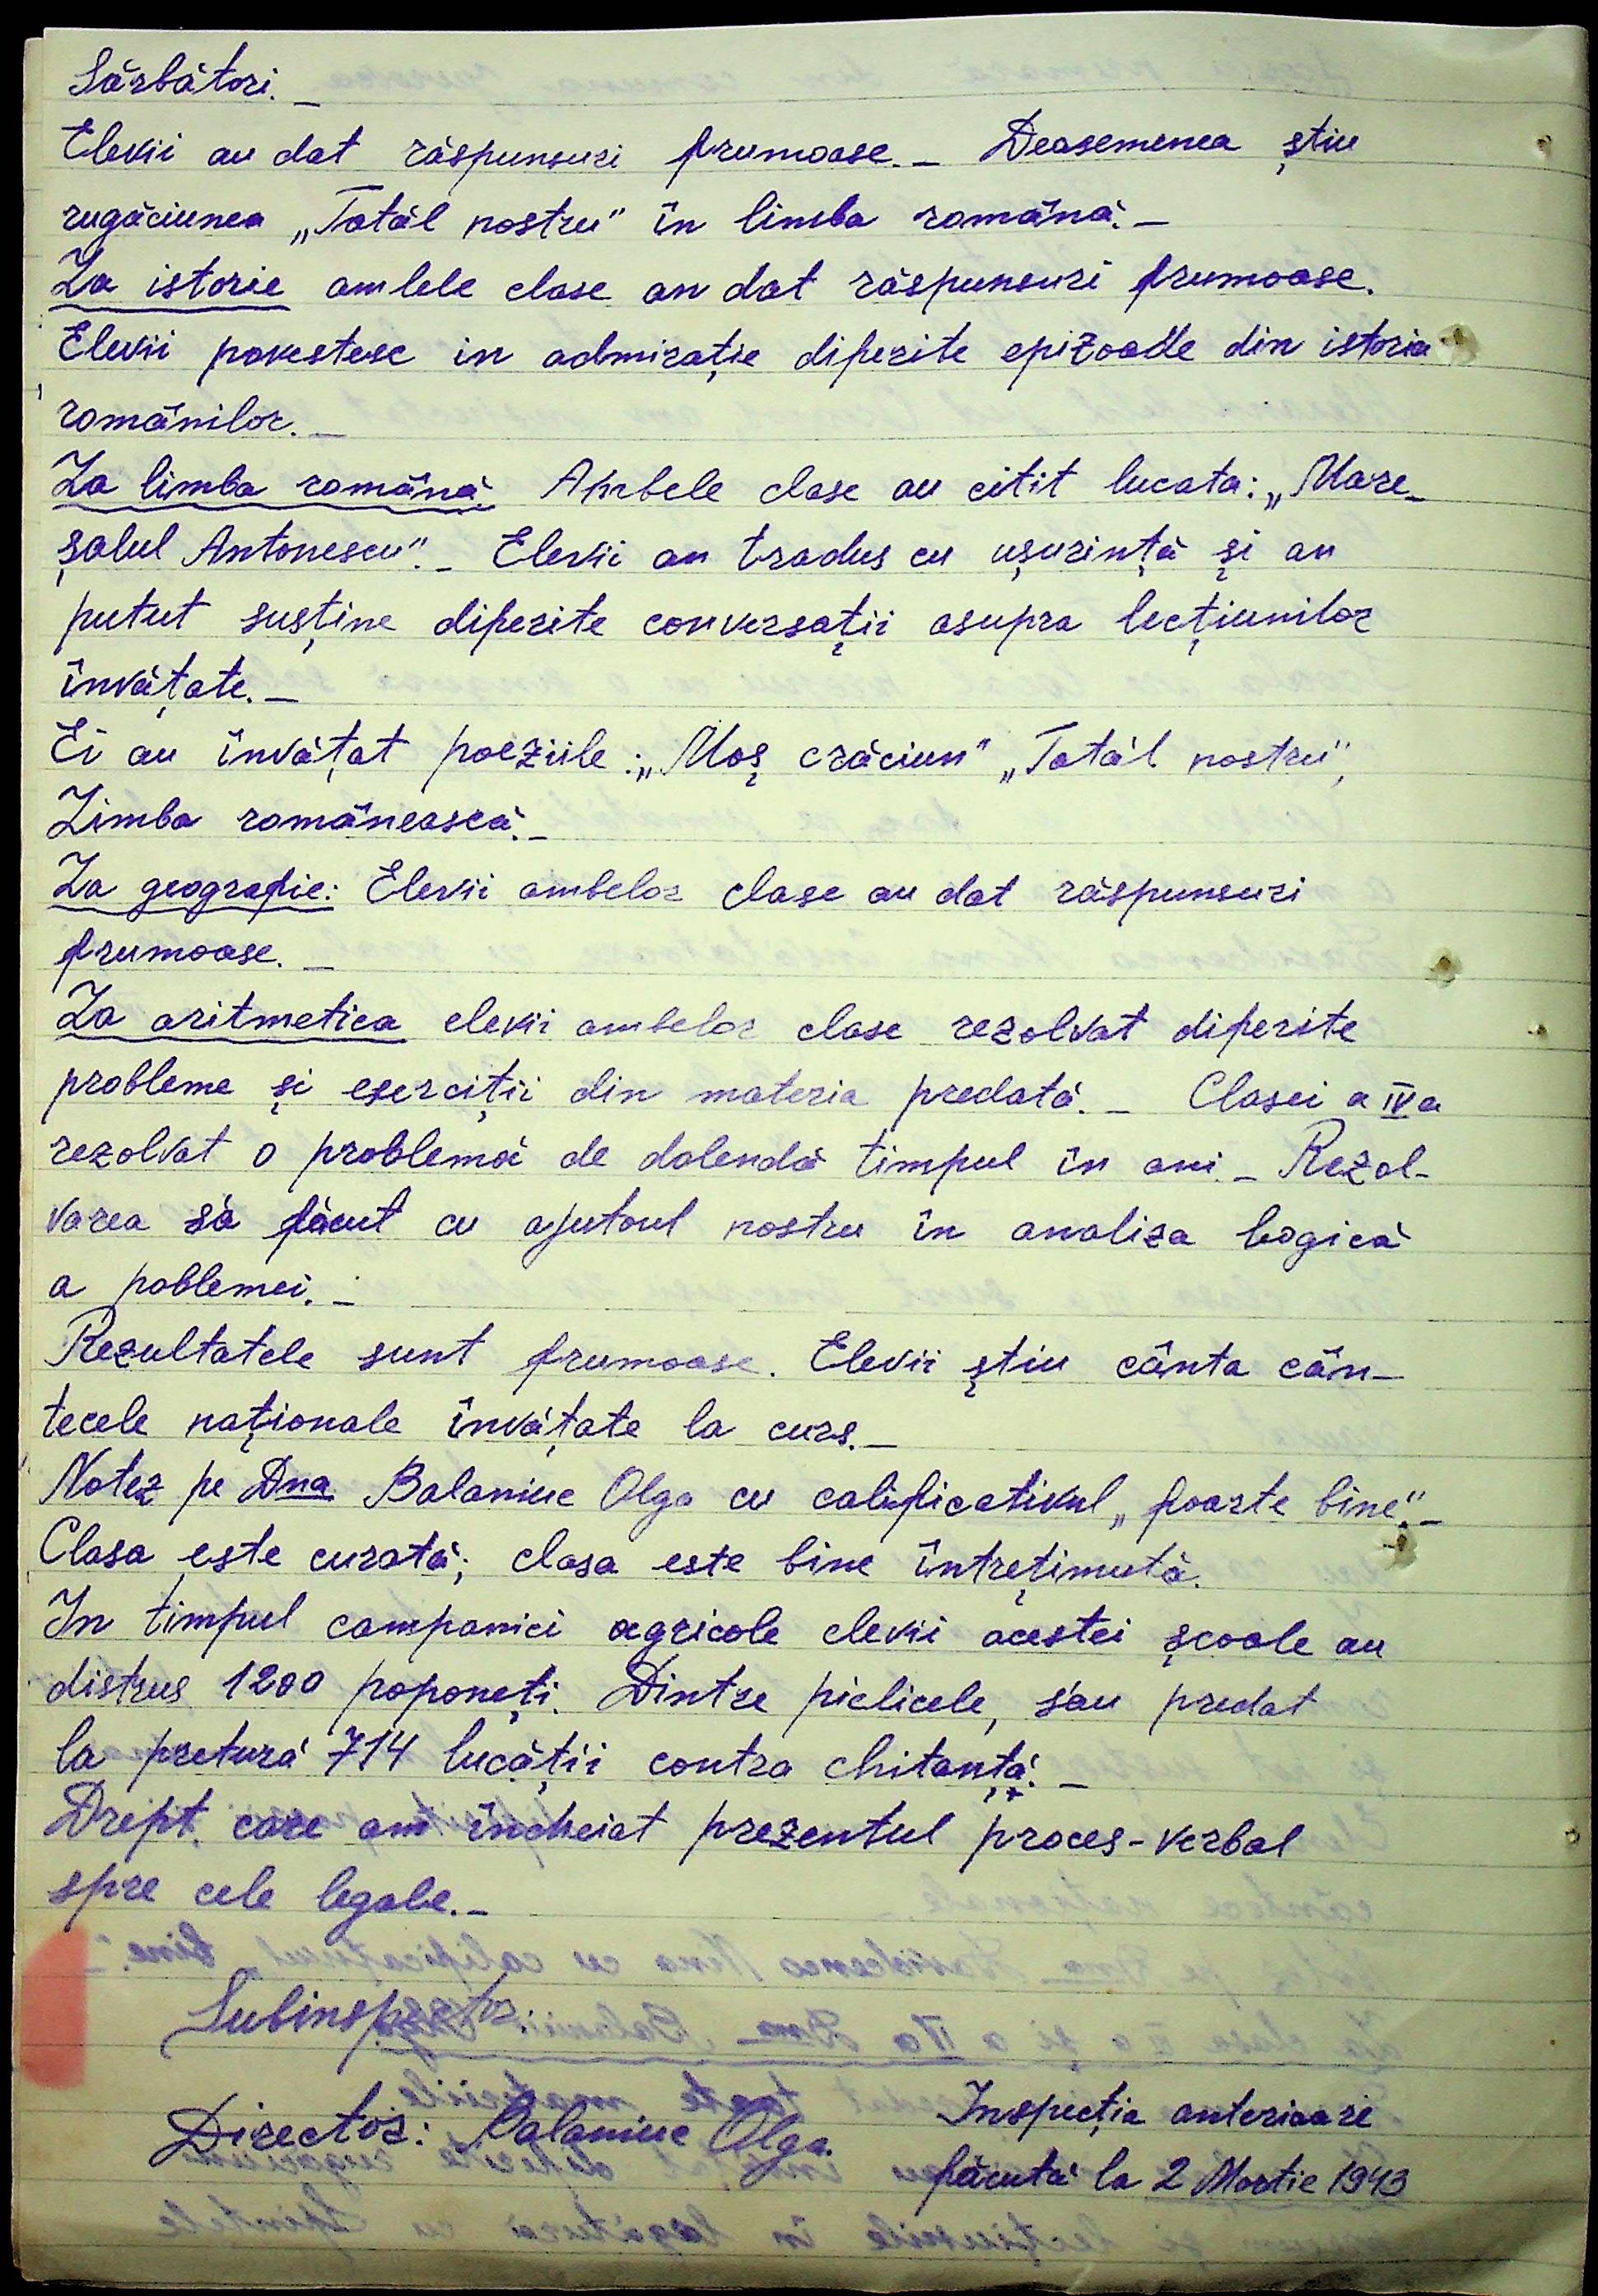 Sărbători. _
Elevii au dat răspunsuri frumoase. _ Deasemenea știu
rugăciunea „Tatăl nostru" în limba română. _
La istorie amlele clase au dat răspunsuri frumoase.
Elevii povestesc in admirație diferite epizoade din istoria
românilor. _
La limba română. Ambele clase au citit lucata: „Mare-
șalul Antonescu". _ Elevii au tradus cu ușurință și au
putut susține diferite conversații asupra lecțiunilor
învățate. _
Ei au învățat poeziile: „Moș crăciun" „Tatăl nostru",
Limba românească. _
La geografie: Elevii ambelor clase au dat răspunsuri
frumoase. _
La aritmetica elevii ambelor clase rezolvat diferite
probleme și eserciții din materia predată. _ Clasei a IV a
rezolvat o problemă de dolendă timpul în ani. _ Rezol-
varea s'a făcut cu ajutoul nostru în analiza logică
a poblemei. _
Rezultatele sunt frumoase. Elevii știu cânta cân-
tecele naționale învățate la curs. _
Notez pe Dna Balaniuc Olga cu calificativul „foarte bine". _
Clasa este curată; clasa este bine întrețimută.
In timpul campaniei agricole elevii acestei școale au
distrus 1200 poponeți. Dintre pielicele, s'au predat
la pretură 714 lucății contra chitanță. _
Drept care am încheiat prezentul proces-verbal
spre cele legale. _
Subinspector
Director: Balaniuc Olga.
Inspecția anterioare
făcută la 2 Martie 1943